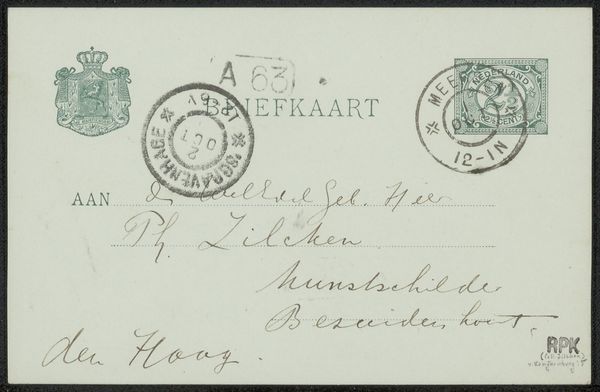 A 63
BRIEFKAART
NEDERLAND
2½
2½ CENT
MEE
12-1N
'SGRAVENHAGE
2 OCT
AAN
WelEdel Geb. Heer
Ph. Zilcken
Kunstschilder
Bezuidenhout
den Haag.
RPK